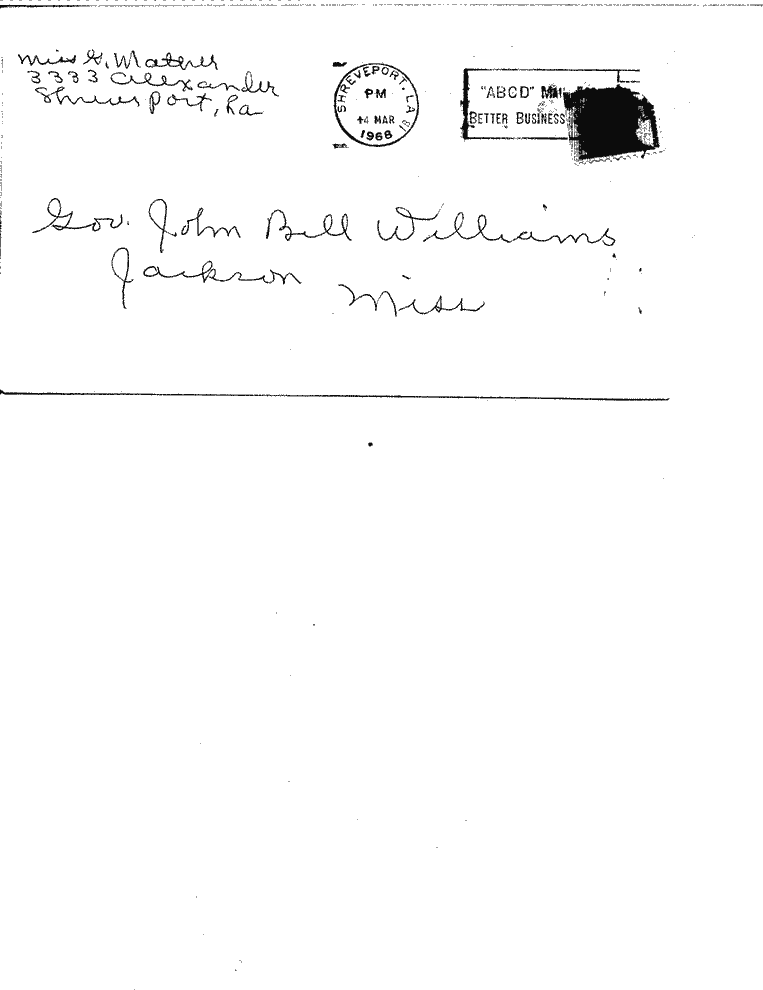 Miss G. Materer
3333 Alexander
Shreveport, La
SHREVEPORT, LA
PM
14 MAR
1968
"ABCD"
BETTER BUSINESS
Gov. John Bell Williams
Jackson
Miss